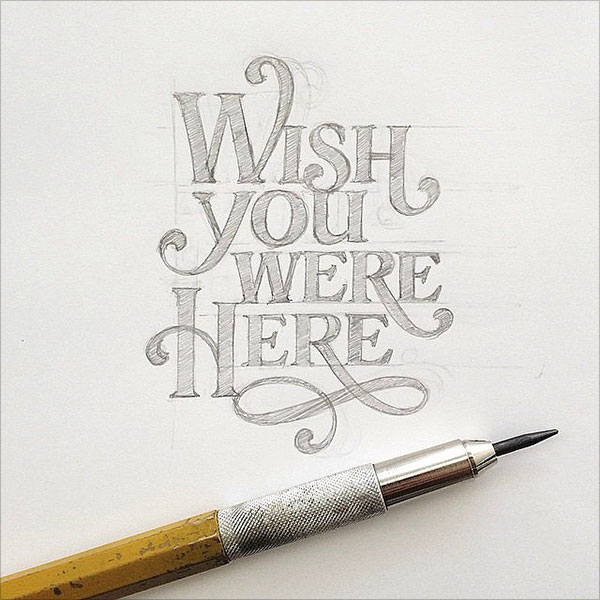 Wish
you
were
Here